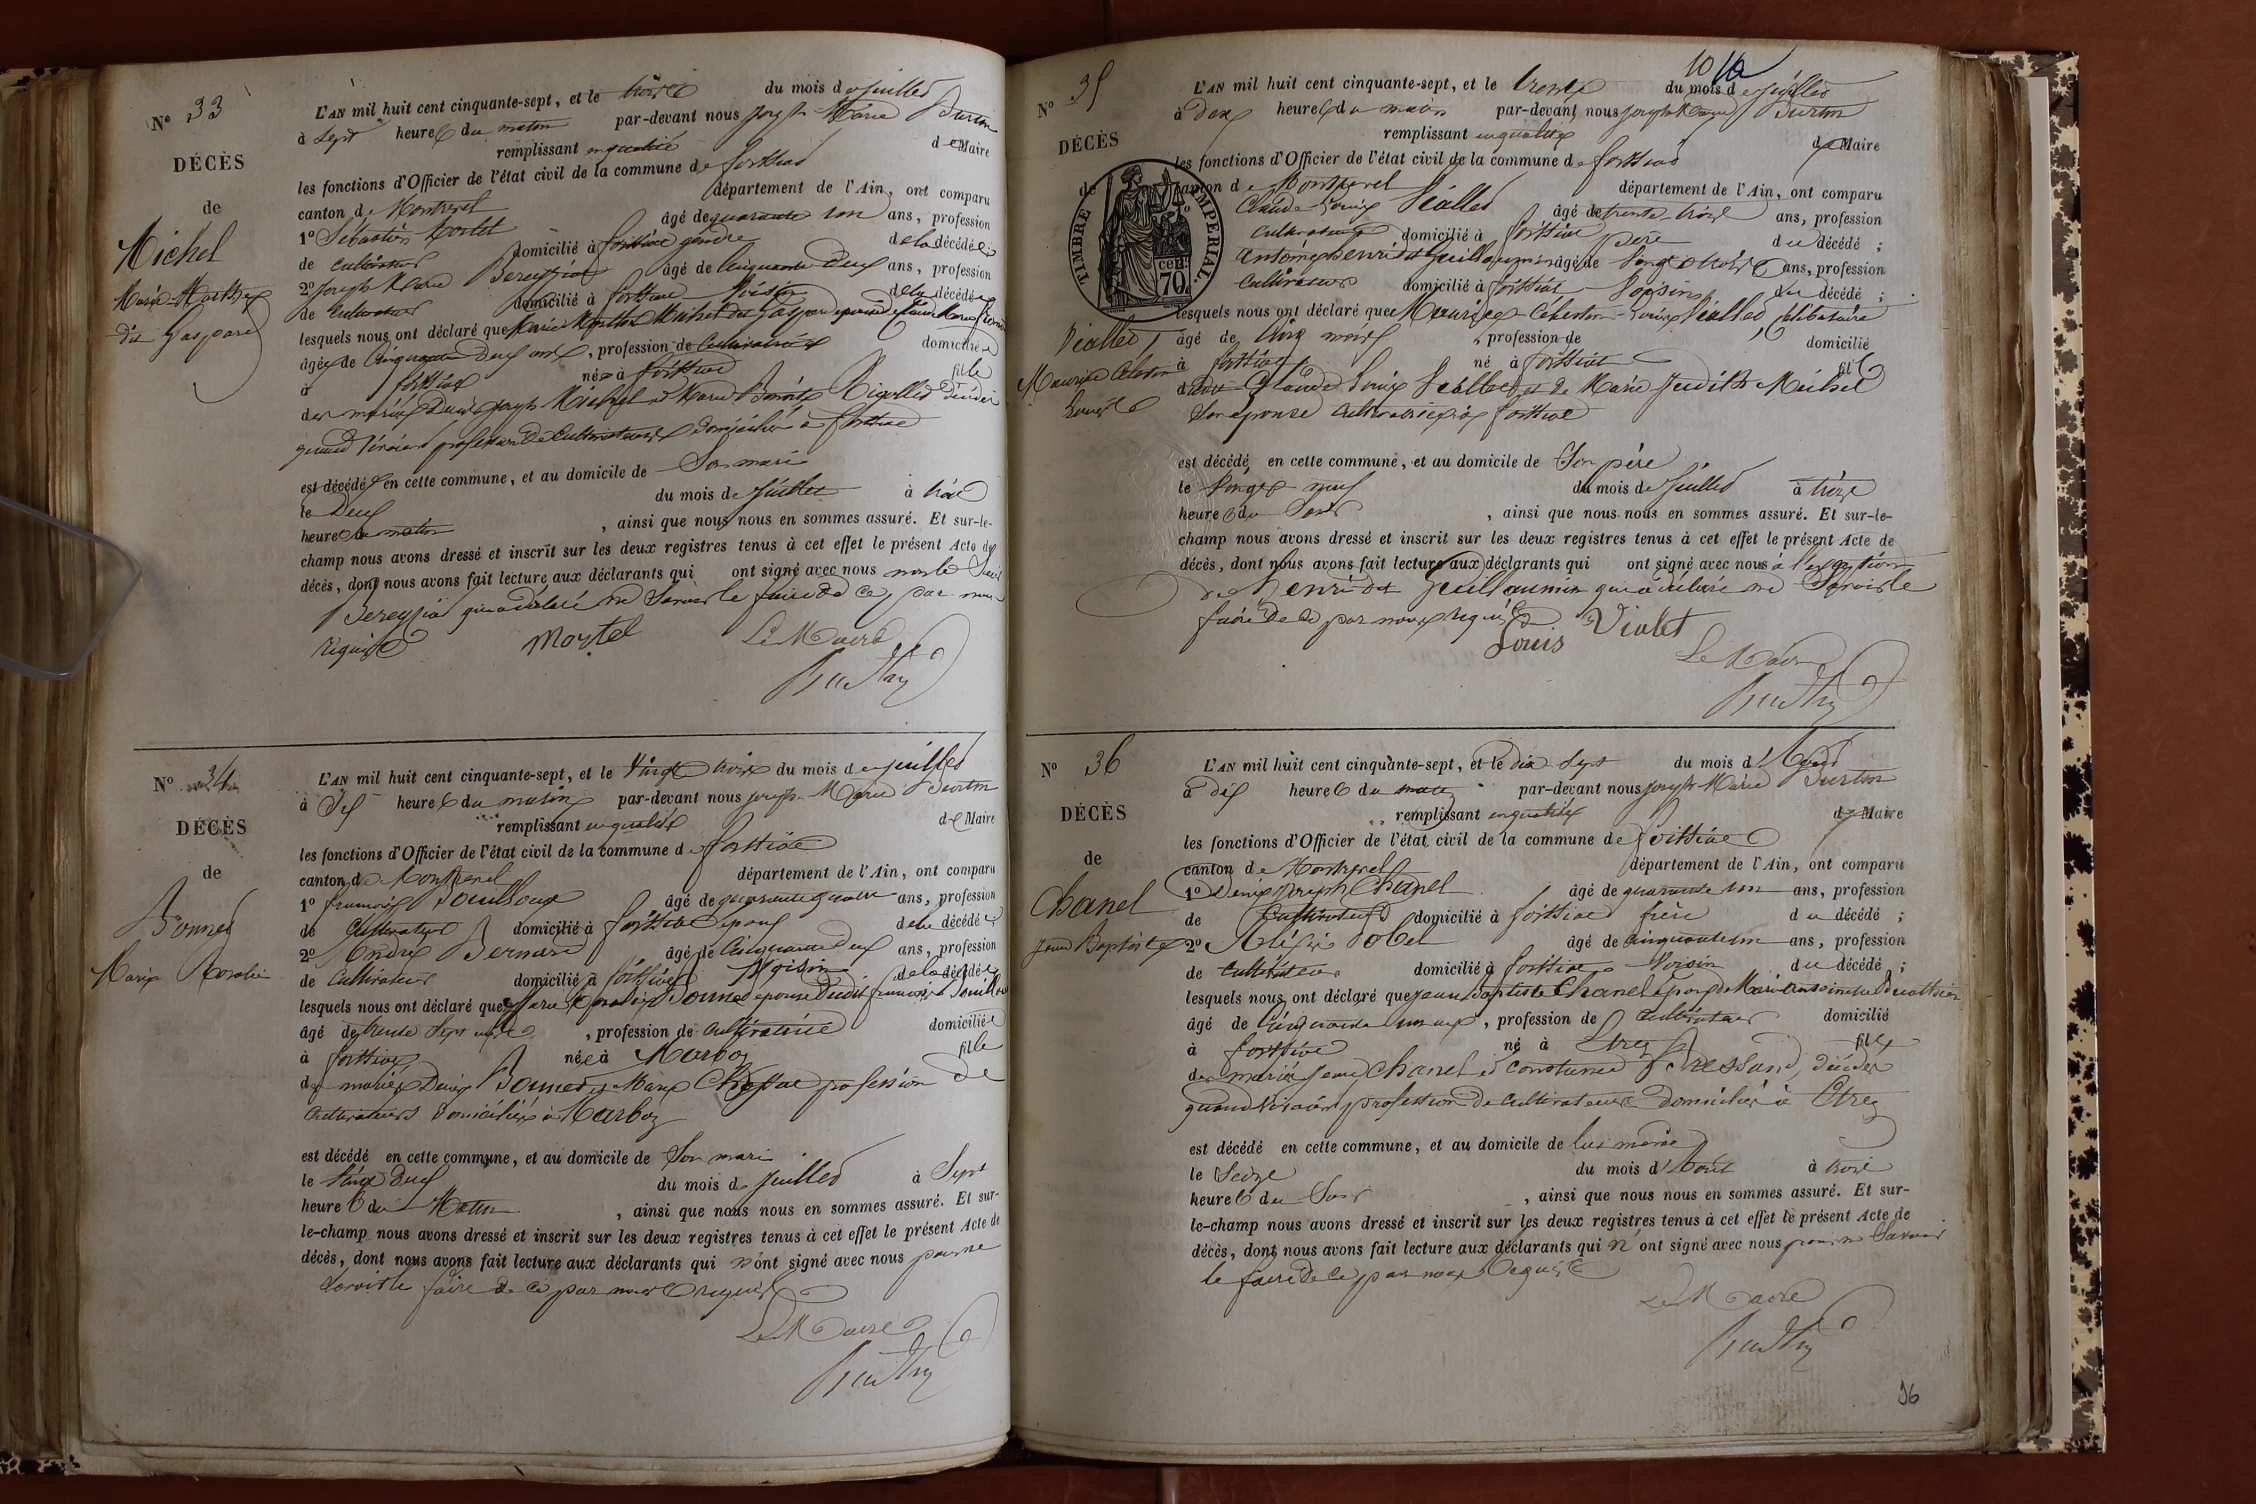 N° 33
DÉCÈS
de
Michel
Marie Marthe
dit Gaspard
L'AN mil huit cent cinquante-sept, et le trois du mois de juillet
à sept heures du matin par-devant nous Joseph Marie Burtin
remplissant en qualité de Maire
les fonctions d'Officier de l'état civil de la commune de foissiat
canton de Montrevel département de l'Ain, ont comparu
1° Sébastien Mortel âgé de quarante un ans, profession
de cultivateur domicilié à foissiat gendre de la décédée
2° Joseph Marie Bereyziat âgé de cinquante deux ans, profession
de cultivateur domicilié à foissiat voisin de la décédée
lesquels nous ont déclaré que Marie Marthe Michel dit Gaspard épouse de
âgée de cinquante deux ans, profession de cultivatrice domiciliée
à foissiat née à foissiat fille
des mariés Denis Joseph Michel et Marie Benoite Rigollet décédés
quand vivaient profession de cultivateurs domiciliés à foissiat
est décédée en cette commune, et au domicile de Son mari
le Deux du mois de juillet à trois
heures du matin, ainsi que nous nous en sommes assuré. Et sur-le-
champ nous avons dressé et inscrit sur les deux registres tenus à cet effet le présent Acte de
décès, dont nous avons fait lecture aux déclarants qui ont signé avec nous non le Sieur
Bereyziat qui a déclaré ne Savoir le faire de ce par nous
requis
Mortel Le Maire
Burtin
N° 34
DÉCÈS
de
Bonnet
Marie Rosalie
L'AN mil huit cent cinquante-sept, et le Vingt trois du mois de juillet
à Six heures du matin par-devant nous joseph Marie Burtin
remplissant en qualité de Maire
les fonctions d'Officier de l'état civil de la commune de foissiat
canton de Montrevel département de l'Ain, ont comparu
1° françois âgé de quarante quatre ans, profession
de Cultivateur domicilié à foissiat époux de la décédée
2° André Bernard âgé de cinquante deux ans, profession
de Cultivateur domicilié à foissiat Voisin de la décédée
lesquels nous ont déclaré que Marie Rosalie Bonnet épouse dudit françois
âgé de trente Sept ans, profession de cultivatrice domiciliée
à foissiat née à Marboz fille
des mariés Denis Bonnet et Marie profession de
Cultivateurs domiciliés à Marboz
est décédé en cette commune, et au domicile de Son mari
le Vingt Deux du mois de juillet à Sept
heures du Matin, ainsi que nous nous en sommes assuré. Et sur-
le-champ nous avons dressé et inscrit sur les deux registres tenus à cet effet le présent Acte de
décès, dont nous avons fait lecture aux déclarants qui n'ont signé avec nous pour ne
Savoir le faire de ce par nous requis
Le Maire
Burtin
10
N° 35
DÉCÈS
de
TIMBRE IMPÉRIAL
70 cent
Viallet
Maurice Célestin
Louis
L'AN mil huit cent cinquante-sept, et le trente du mois de juillet
à Dix heures du matin par-devant nous joseph Marie Burtin
remplissant en qualité de Maire
les fonctions d'Officier de l'état civil de la commune de foissiat
canton de Montrevel département de l'Ain, ont comparu
Claude Louis Viallet âgé de trente trois ans, profession
Cultivateur domicilié à foissiat père du décédé;
Antoine Henri dit Guillaumin âgé de ans, profession
Cultivateur domicilié à foissiat Voisin du décédé;
lesquels nous ont déclaré que Maurice Célestin Louis Viallet, célibataire
âgé de cinq mois, profession de domicilié
à foissiat né à foissiat fils
dudit Claude Louis Viallet et de Marie Judith Michel
Son épouse Cultivatrice à foissiat
est décédé en cette commune, et au domicile de Son père
le Vingt neuf du mois de juillet à
heures du Soir, ainsi que nous nous en sommes assuré. Et sur-le-
champ nous avons dressé et inscrit sur les deux registres tenus à cet effet le présent Acte de
décès, dont nous avons fait lecture aux déclarants qui ont signé avec nous à l'exception
de Henri dit Guillaumin qui a déclaré ne Savoir le
faire de ce par nous requis
Louis Violet
Le Maire
Burtin
N° 36
DÉCÈS
de
Chanel
Jean Baptiste
L'AN mil huit cent cinquante-sept, et le dix Sept du mois d'Août
à dix heures du matin par-devant nous joseph Marie Burtin
remplissant en qualité de Maire
les fonctions d'Officier de l'état civil de la commune de foissiat
canton de Montrevel département de l'Ain, ont comparu
1° Denis Joseph Chanel âgé de quarante un ans, profession
de Cultivateur domicilié à foissiat frère du décédé;
2° Alexis Pobel âgé de cinquante un ans, profession
de cultivateur domicilié à foissiat Voisin du décédé;
lesquels nous ont déclaré que jean Baptiste Chanel époux de Marie
âgé de cinquante un ans, profession de cultivateur domicilié
à foissiat né à Etrez fils
des mariés jean Chanel et Bressand, décédés
quand vivaient profession de cultivateurs domiciliés à Etrez
est décédé en cette commune, et au domicile de lui même
le Seize du mois d'Août à trois
heures du Soir, ainsi que nous nous en sommes assuré. Et sur-
le-champ nous avons dressé et inscrit sur les deux registres tenus à cet effet le présent Acte de
décès, dont nous avons fait lecture aux déclarants qui n'ont signé avec nous pour ne Savoir
le faire de ce par nous requis
Le Maire
Burtin
36